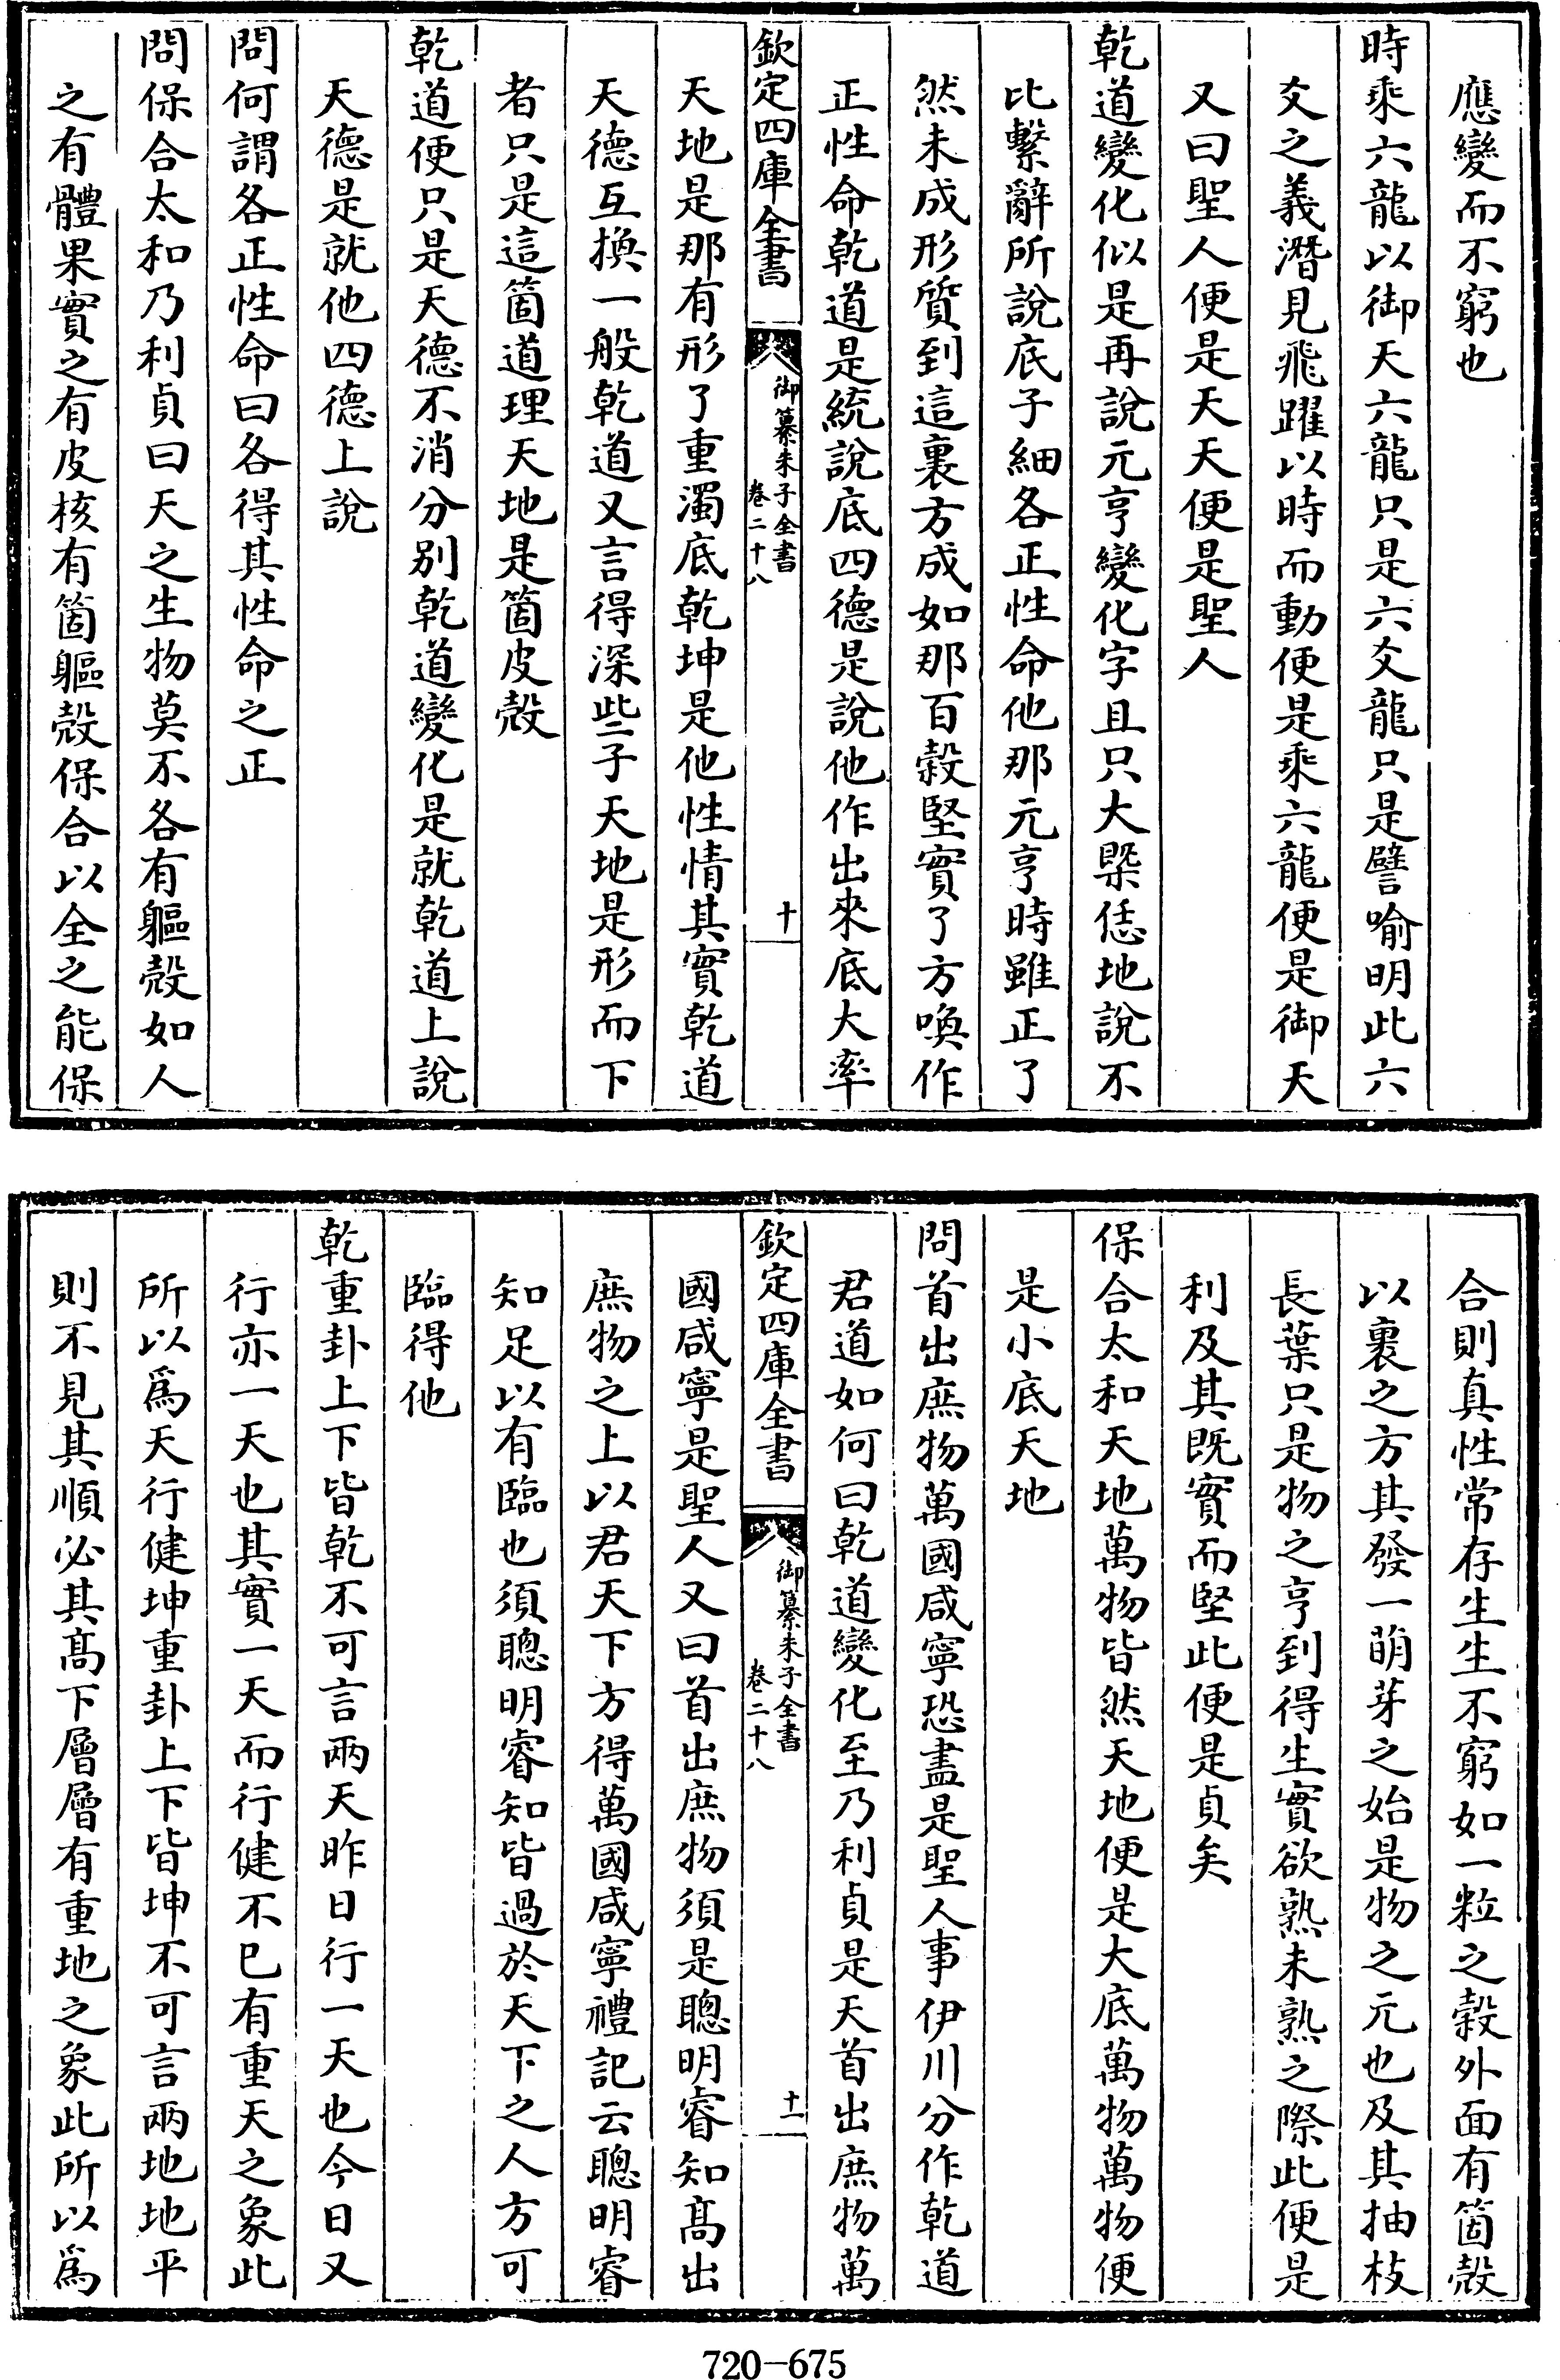 應變而不窮也
時乘六龍以御天六龍只是六爻龍只是譬喻明此六
爻之義潛見飛躍以時而動便是乘六龍便是御天
又曰聖人便是天天便是聖人
乾道變化似是再說元亨變化字且只大槩恁地說不
比繫辭所說底子細各正性命他那元亨時雖正了
然未成形質到這裏方成如那百穀堅實了方喚作
正性命乾道是統說底四德是說他作出來底大率
欽定四庫全書
御纂朱子全書
卷二十八
十
天地是那有形了重濁底乾坤是他性情其實乾道
天德互換一般乾道又言得深些子天地是形而下
者只是這箇道理天地是箇皮殼
乾道便只是天德不消分別乾道變化是就乾道上說
天德是就他四德上說
問何謂各正性命曰各得其性命之正
問保合太和乃利貞曰天之生物莫不各有軀殼如人
之有體果實之有皮核有箇軀殼保合以全之能保
合則真性常存生生不窮如一粒之穀外面有箇殼
以裹之方其發一萌芽之始是物之元也及其抽枝
長葉只是物之亨到得生實欲熟未熟之際此便是
利及其既實而堅此便是貞矣
保合太和天地萬物皆然天地便是大底萬物萬物便
是小底天地
問首出庶物萬國咸寧恐盡是聖人事伊川分作乾道
君道如何曰乾道變化至乃利貞是天首出庶物萬
欽定四庫全書
御纂朱子全書
卷二十八
十一
國咸寧是聖人又曰首出庶物須是聰明睿知高出
庶物之上以君天下方得萬國咸寧禮記云聰明睿
知足以有臨也須聰明睿知皆過於天下之人方可
臨得他
乾重卦上下皆乾不可言兩天昨日行一天也今日又
行亦一天也其實一天而行健不已有重天之象此
所以為天行健坤重卦上下皆坤不可言兩地地平
則不見其順必其高下層層有重地之象此所以為
720-675